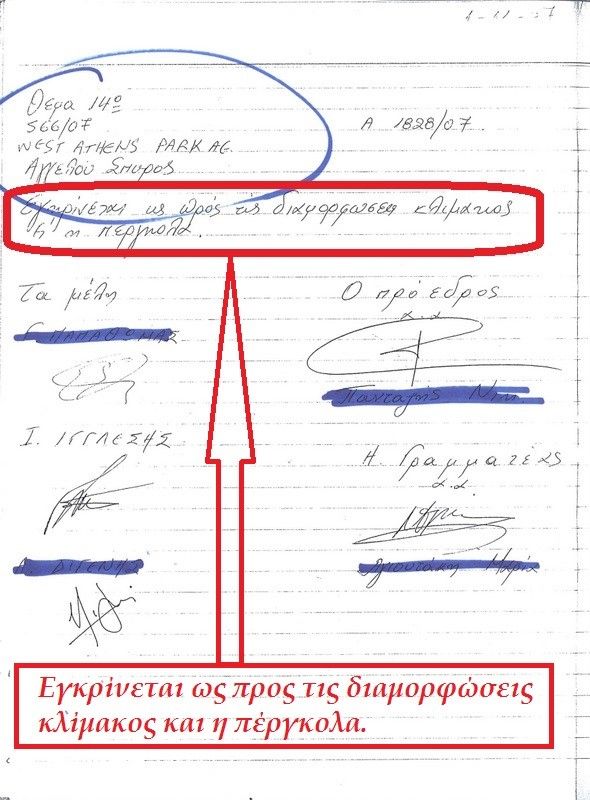 Θέμα 14ο
566/07
WEST ATHENS PARK AE
Αγγέλου Σπύρος
Α 1828/07
Εγκρίνεται ως προς τις διαμορφώσεις κλίμακος
& η πέργκολα.
Τα μέλη
Ο πρόεδρος
α.α
Ι. ΙΓΓΛΕΣΗΣ
Η Γραμματέας
α.α.
Εγκρίνεται ως προς τις διαμορφώσεις
κλίμακος και η πέργκολα.